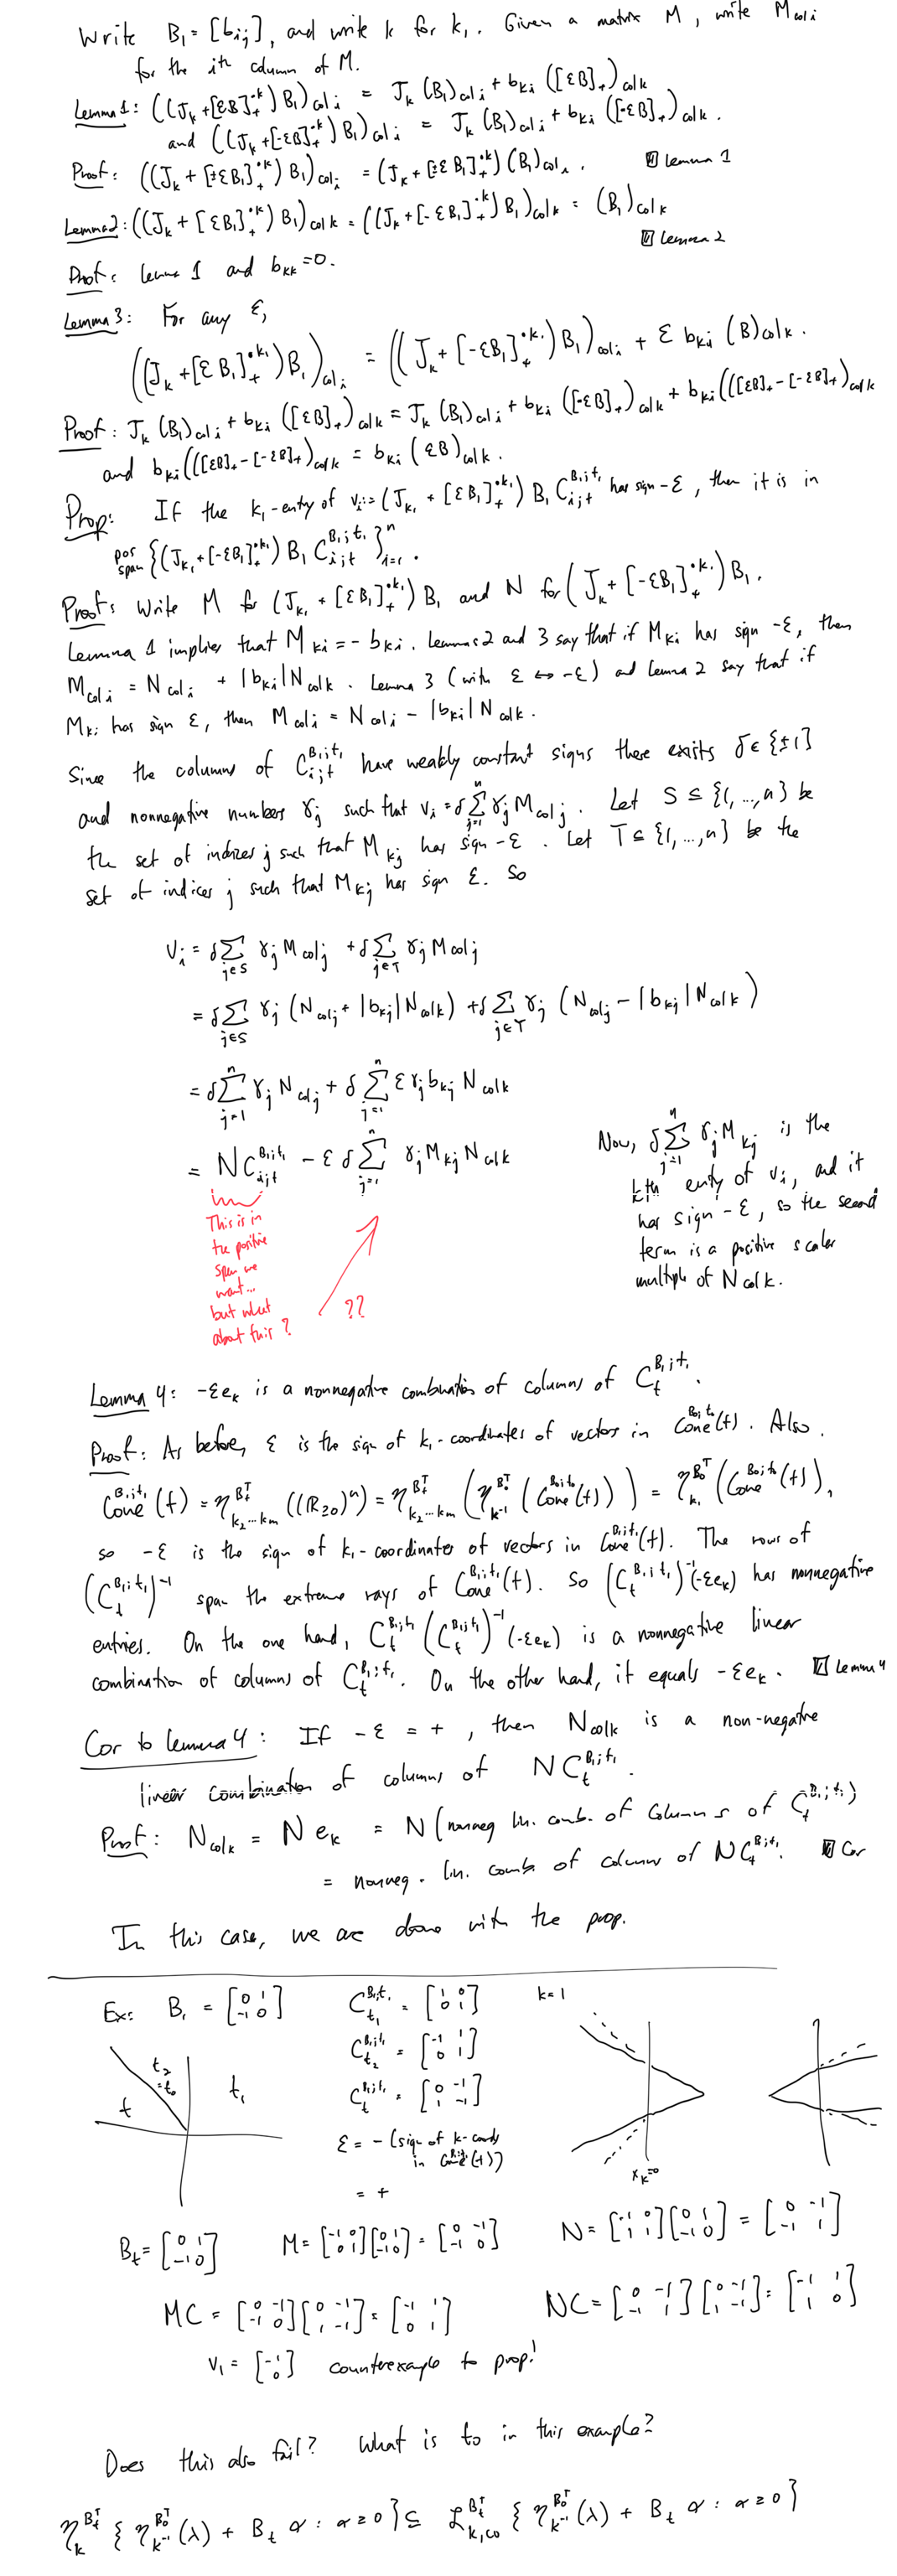 Write B₁ = [bᵢⱼ], and write k for k₁. Given a matrix M, write M_col i
for the ith column of M.
Lemma 1: ((J_k + [εB]₊^{•k}) B₁)_col i = J_k (B₁)_col i + b_ki ([εB]₊)_col k
and ((J_k + [-εB]₊^{•k}) B₁)_col i = J_k (B₁)_col i + b_ki ([-εB]₊)_col k.
Proof: ((J_k + [±εB₁]₊^{•k}) B₁)_col i = (J_k + [±εB₁]₊^{•k}) (B₁)_col i. ▯ Lemma 1
Lemma 2: ((J_k + [εB₁]₊^{•k}) B₁)_col k = ((J_k + [-εB₁]₊^{•k}) B₁)_col k = (B₁)_col k
▯ Lemma 2
Proof: Lemma 1 and b_kk = 0.
Lemma 3: For any ε,
((J_k + [εB₁]₊^{•k₁}) B₁)_col i = ((J_k + [-εB₁]₊^{•k₁}) B₁)_col i + ε b_ki (B)_col k.
Proof: J_k (B₁)_col i + b_ki ([εB]₊)_col k = J_k (B₁)_col i + b_ki ([-εB]₊)_col k + b_ki (([εB]₊ - [-εB]₊)_col k
and b_ki (([εB]₊ - [-εB]₊)_col k = b_ki (εB)_col k.
Prop: If the k₁-entry of vᵢ := (J_k₁ + [εB₁]₊^{•k₁}) B₁ C_{i;t}^{B₁;t₁} has sgn -ε, then it is in
pos span {(J_k₁ + [-εB₁]₊^{•k₁}) B₁ C_{i;t}^{B₁;t₁}}ⁿ_{i=1}.
Proof: Write M for (J_k₁ + [εB₁]₊^{•k₁}) B₁ and N for (J_k + [-εB₁]₊^{•k₁}) B₁.
Lemma 1 implies that M_ki = -b_ki. Lemmas 2 and 3 say that if M_ki has sign -ε, then
M_col i = N_col i + |b_ki| N_col k. Lemma 3 (with ε ↔ -ε) and lemma 2 say that if
M_ki has sign ε, then M_col i = N_col i - |b_ki| N_col k.
Since the columns of C_{i;t}^{B₁;t₁} have weakly constant signs there exists δ ∈ {±1}
and nonnegative numbers γⱼ such that vᵢ = δ Σⁿ_{j=1} γⱼ M_col j. Let S ⊆ {1,...,n} be
the set of indices j such that M_kj has sign -ε. Let T ⊆ {1,...,n} be the
set of indices j such that M_kj has sign ε. So
vᵢ = δ Σ_{j∈S} γⱼ M_col j + δ Σ_{j∈T} γⱼ M_col j
= δ Σ_{j∈S} γⱼ (N_col j + |b_kj| N_col k) + δ Σ_{j∈T} γⱼ (N_col j - |b_kj| N_col k)
= δ Σⁿ_{j=1} γⱼ N_col j + δ Σⁿ_{j=1} ε γⱼ b_kj N_col k
= N C_{i;t}^{B₁;t₁} - ε δ Σⁿ_{j=1} γⱼ M_kj N_col k
Now, δ Σⁿ_{j=1} γⱼ M_kj is the
kth entry of vᵢ, and it
has sign -ε, so the second
term is a positive scalar
multiple of N_col k.
This is in
the positive
span we
want...
but what
about this?
??
Lemma 4: -εe_k is a nonnegative combination of columns of C_t^{B₁;t₁}.
Proof: As before, ε is the sign of k₁-coordinates of vectors in Cone^{B₀;t₀}(t). Also,
Cone^{B₁;t₁}(t) = η^{B_t^T}_{k₂...k_m} ((ℝ≥0)ⁿ) = η^{B_t^T}_{k₂...k_m} (η^{B₀^T}_{k⁻¹} (Cone^{B₀;t₀}(t))) = η^{B₀^T}_{k₁} (Cone^{B₀;t₀}(t)),
so -ε is the sign of k₁-coordinates of vectors in Cone^{B₁;t₁}(t). The rows of
(C_t^{B₁;t₁})⁻¹ span the extreme rays of Cone^{B₁;t₁}(t). So (C_t^{B₁;t₁})⁻¹(-εe_k) has nonnegative
entries. On the one hand, C_t^{B₁;t₁} (C_t^{B₁;t₁})⁻¹ (-εe_k) is a nonnegative linear
combination of columns of C_t^{B₁;t₁}. On the other hand, it equals -εe_k. ▯ Lemma 4
Cor to Lemma 4: If -ε = +, then N_col k is a non-negative
linear combination of columns of N C_t^{B₁;t₁}.
Proof: N_col k = N e_k = N (nonneg lin. comb. of columns of C_t^{B₁;t₁})
= nonneg. lin. comb. of columns of N C_t^{B₁;t₁}. ▯ Cor
In this case, we are done with the prop.
Ex: B₁ = [0 1; -1 0] C_{t₁}^{B₁;t₁} = [1 0; 0 1] k=1
C_{t₂}^{B₁;t₁} = [-1 1; 0 1]
C_t^{B₁;t₁} = [0 -1; 1 -1]
t₂ = t₀
t₁
t
ε = -(sign of k-coords
in Cone^{B₁;t₁}(t))
= +
x_k=0
B_t = [0 1; -1 0] M = [-1 0; 0 1][0 1; -1 0] = [0 -1; -1 0] N = [-1 0; 1 1][0 1; -1 0] = [0 -1; -1 1]
MC = [0 -1; -1 0][0 -1; 1 -1] = [-1 1; 0 1] NC = [0 -1; -1 1][0 -1; 1 -1] = [-1 1; 1 0]
v₁ = [-1; 0] counterexample to prop!
Does this also fail? What is t₀ in this example?
η_k^{B_t^T} { η_{k⁻¹}^{B₀^T}(λ) + B_t α : α ≥ 0 } ⊆ ℒ_{k,co}^{B_t^T} { η_{k⁻¹}^{B₀^T}(λ) + B_t α : α ≥ 0 }